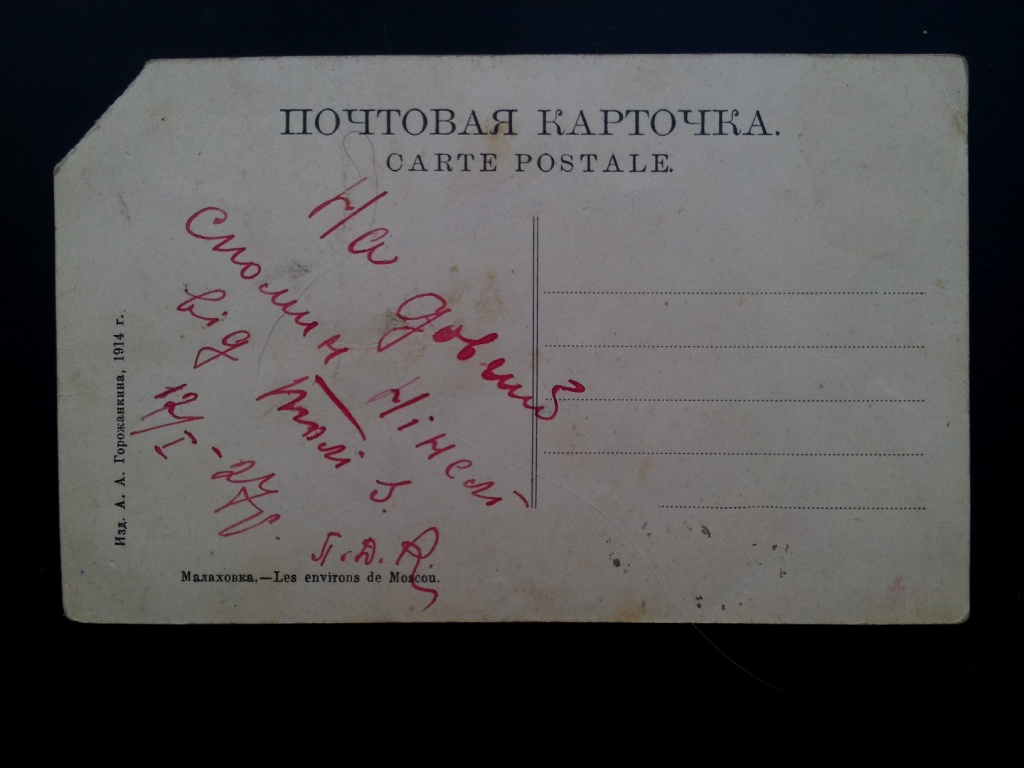 ПОЧТОВАЯ КАРТОЧКА.
CARTE POSTALE.
На довший
спомин Нінелі
від Толі З.
12/I -27р.
Л.Д.К.
Малаховка.—Les environs de Moscou.
Изд. А. А. Горожанкина, 1914 г.